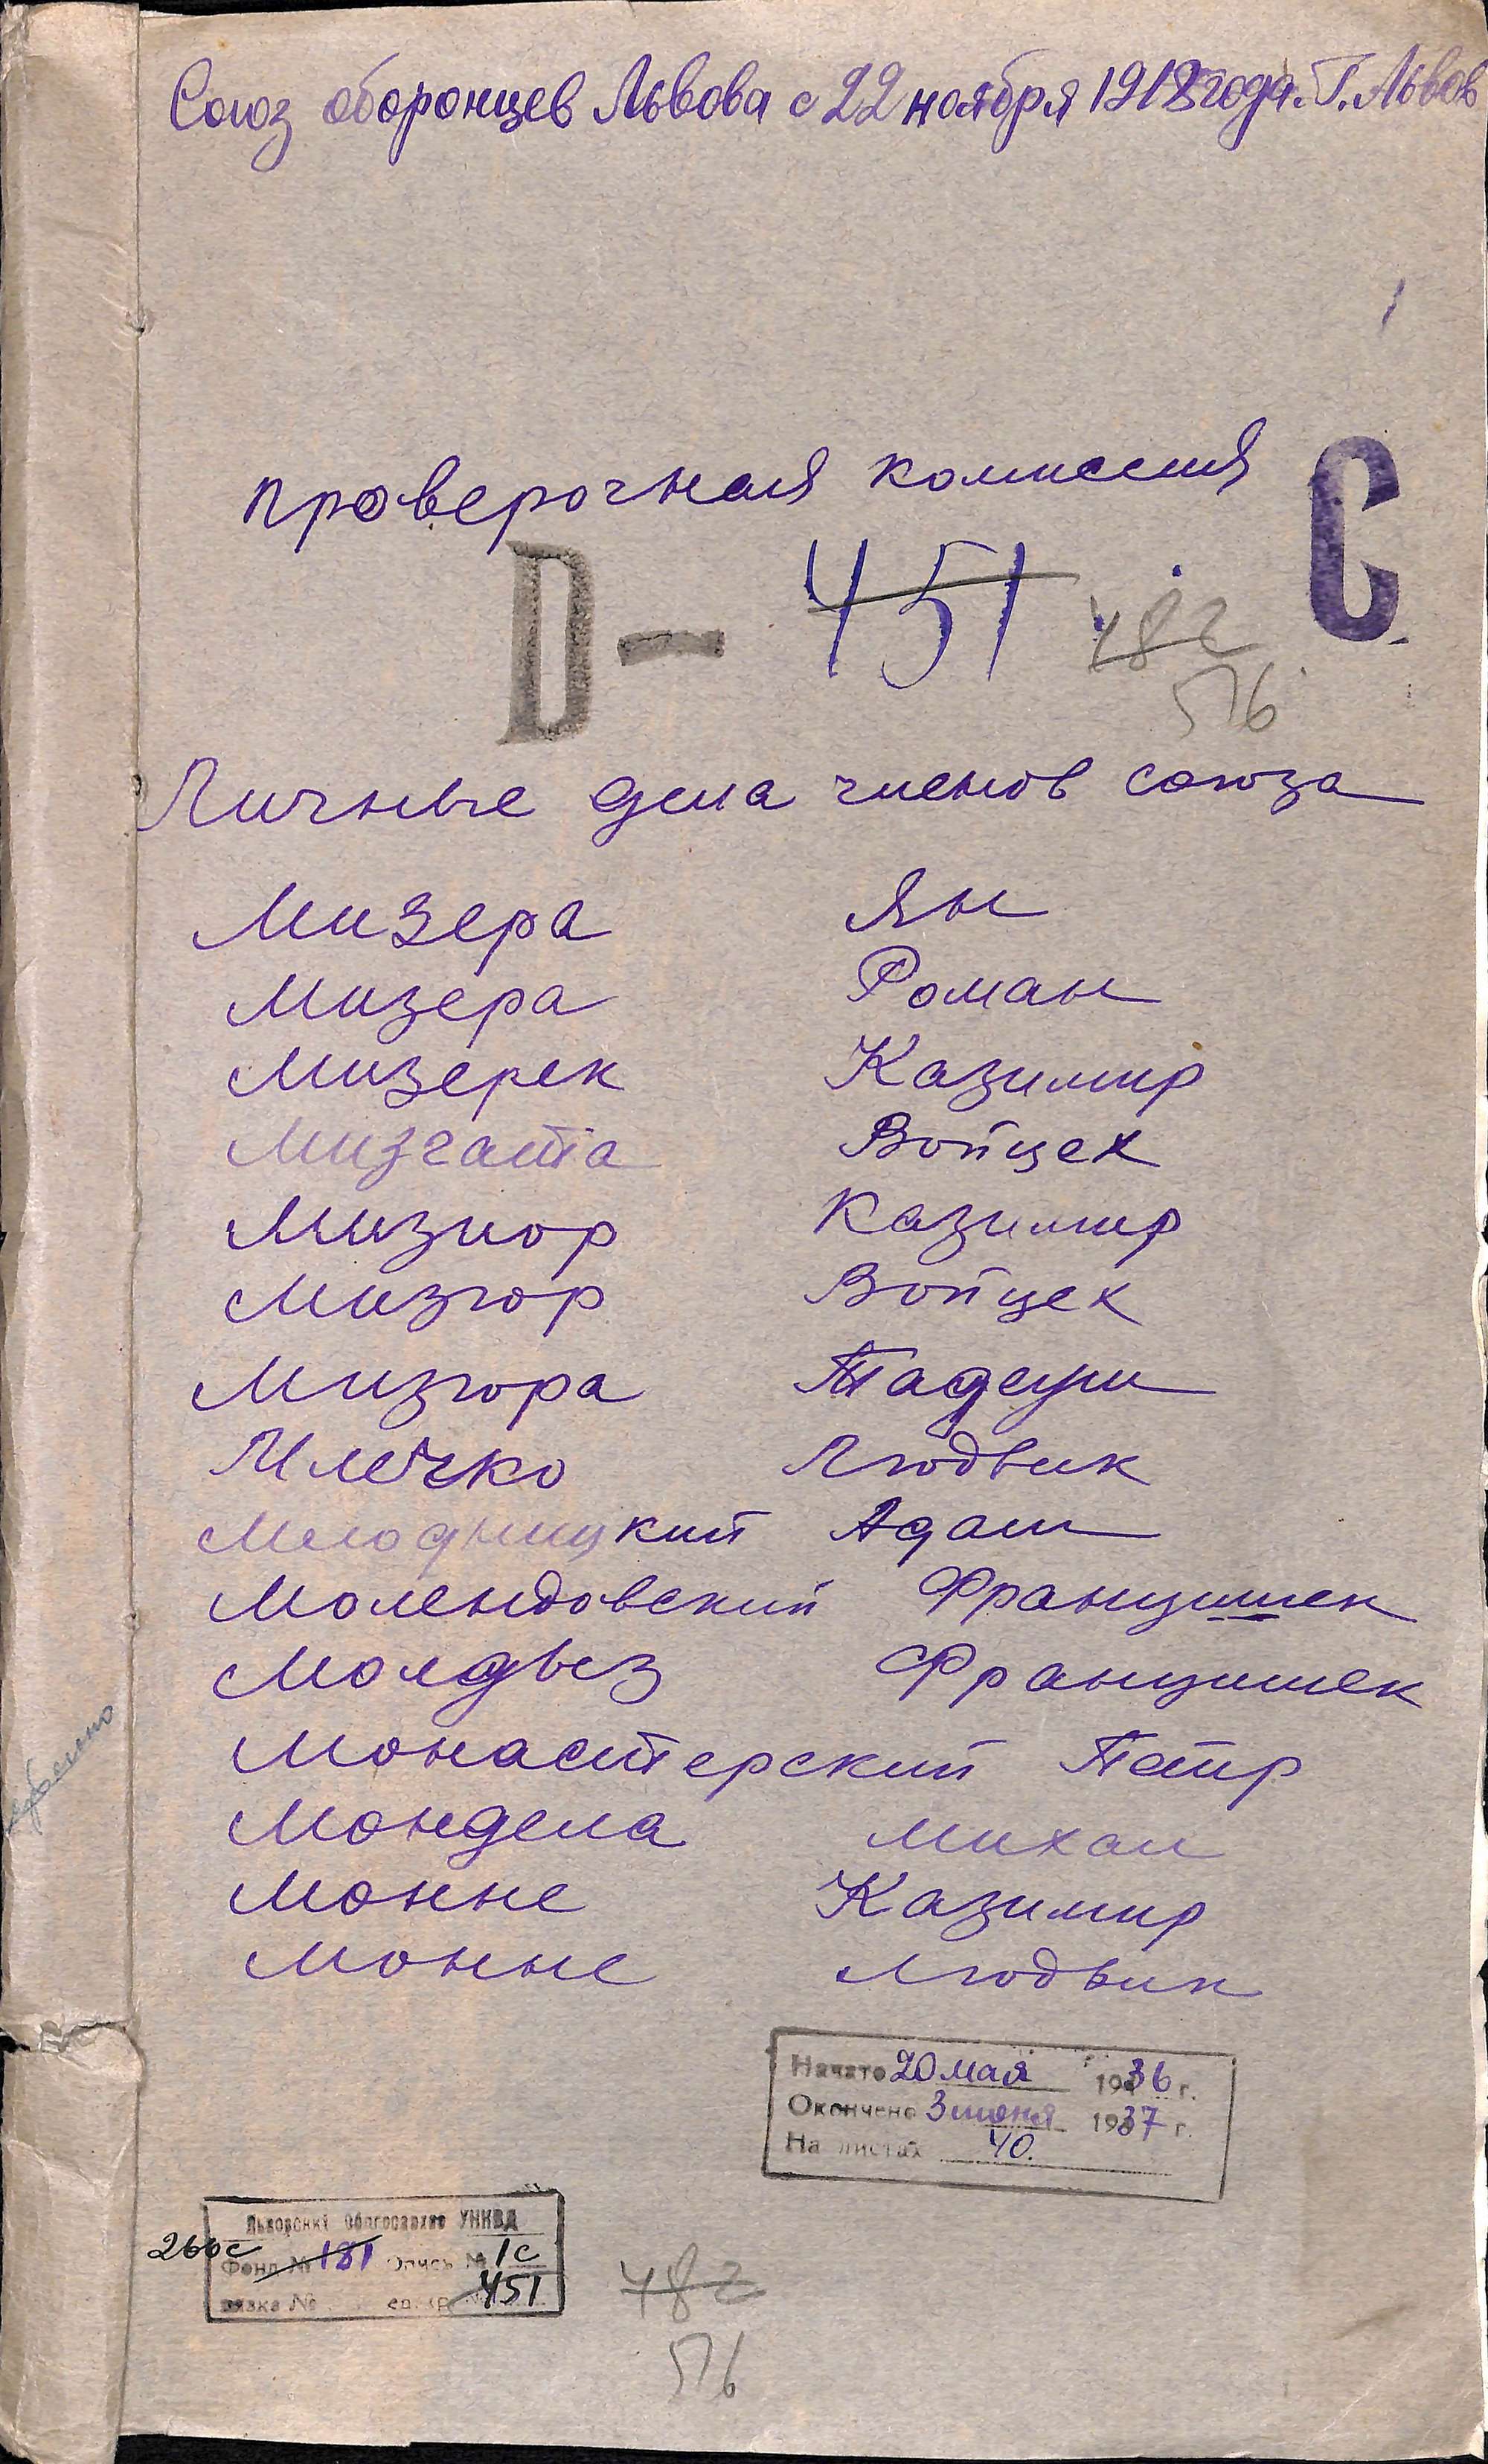 Союз оборонцев Львова с 22 ноября 1918 года. Г. Львов
проверочная комиссия
С
D — 451 482
516
Личные дела членов союза
Мизера Ян
Мизера Роман
Мизерек Казимир
Мизгата Войцех
Мизиор Казимир
Мизюр Войцех
Мизюра Тадеуш
Млечко Людвик
Млодницкий Адам
Молендовский Францишек
Молдыз Францишек
Монастерский Петр
Мондела Михал
Монне Казимир
Монне Людвик
Начато 20 мая 1936 г.
Окончено 3 июня 1937 г.
На листах 40.
Львовский Облгосархив УНКВД
266с Фонд № 181 Опись № 1с
вязка № ед. хр. № 451
482
516